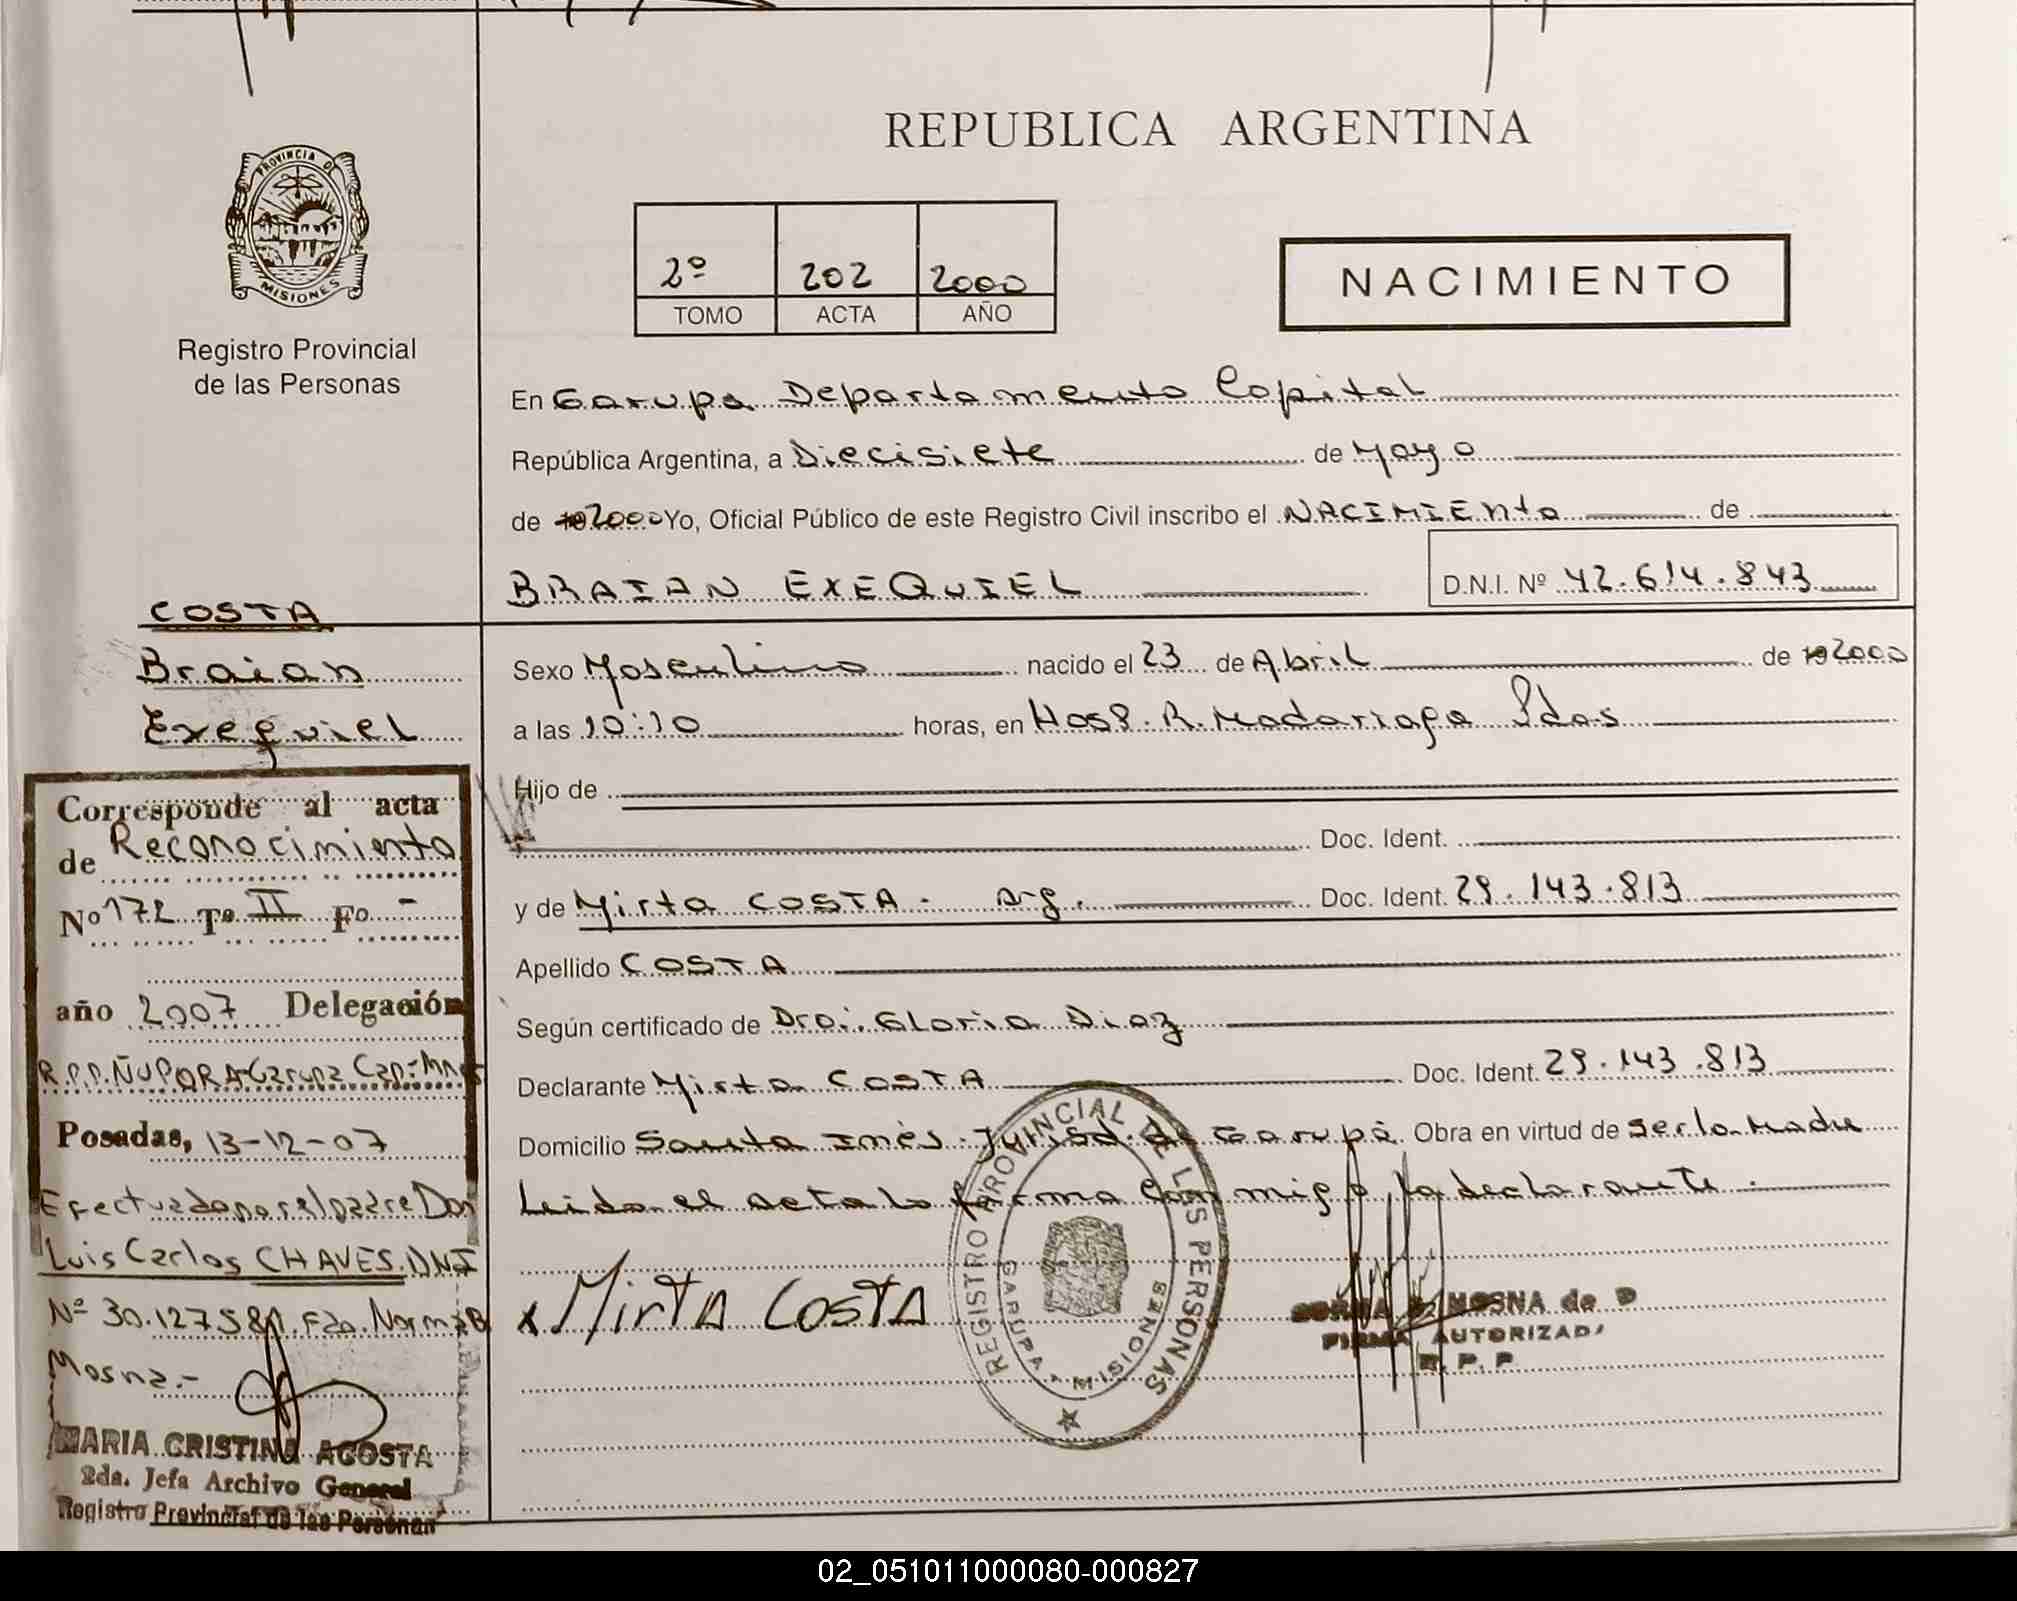 REPUBLICA ARGENTINA
PROVINCIA DE
MISIONES
Registro Provincial
de las Personas
2º 202 2000
TOMO ACTA AÑO
NACIMIENTO
En Garupa Departamento Capital
República Argentina, a Diecisiete de Mayo
de 19 2000 Yo, Oficial Público de este Registro Civil inscribo el NACIMIENto de
BRAIAN EXEQUIEL D.N.I. Nº 42.614.843
Sexo Masculino nacido el 23 de Abril de 19 2000
a las 10:10 horas, en Hosp. R. Madariaga Pdas
Hijo de
Doc. Ident.
y de Mirta COSTA. Arg. Doc. Ident. 29.143.813
Apellido COSTA
Según certificado de Dra. Gloria Diaz
Declarante Mirta COSTA Doc. Ident. 29.143.813
Domicilio Santa Inés. Jurisd. de Garupá. Obra en virtud de ser la Madre
Leida el acta la firma conmigo, la declarante.
x Mirta Costa
REGISTRO PROVINCIAL DE LAS PERSONAS
GARUPA - MISIONES
MOSNA de D
FIRMA AUTORIZADA
R. P. P
COSTA
Braian
Exequiel
Corresponde al acta
de Reconocimiento
Nº 172 Tº II Fº -
año 2007 Delegación
R.P.P. ÑUPORA-Garupa Cap-Mnes
Posadas, 13-12-07
Efectuado por el padre Don
Luis Carlos CHAVES. DNI
Nº 30.127.581. Fdo. Norma B
Mosna.-
MARIA CRISTINA ACOSTA
2da. Jefa Archivo General
Registro Provincial de las Personas
02_051011000080-000827